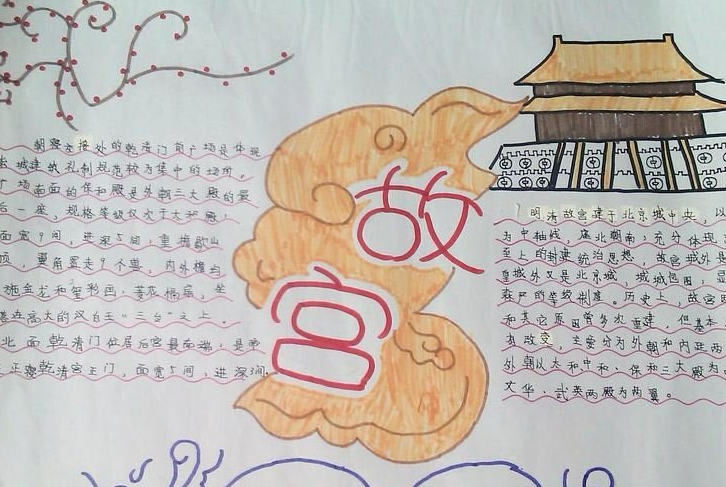 朝寝交接处的乾清门前广场是体现
宫城建筑礼制规范较为集中的场所。
广场南面的保和殿是外朝三大殿的最
后一座，规格等级仅次于太和殿，
面宽9间，进深5间，重檐歇山
顶，翼角置走9个兽，内外檐均
施金龙和玺彩画，菱花槅扇，坐
落在高大的汉白玉“三台”之上
北面乾清门位居后宫最南端，是
正寝乾清宫正门，面宽5间，进深3间。
故
宫
明清故宫建于北京城中央，以
为中轴线，座北朝南，充分体现
至上的封建统治思想。故宫城外是
皇城外又是北京城，城城包围，
森严的等级制度。历史上，故宫
和其它原因曾多次重建，但基本
有改变，主要分为外朝和内廷两
外朝以太和中和、保和三大殿为
文华、武英两殿为两翼。